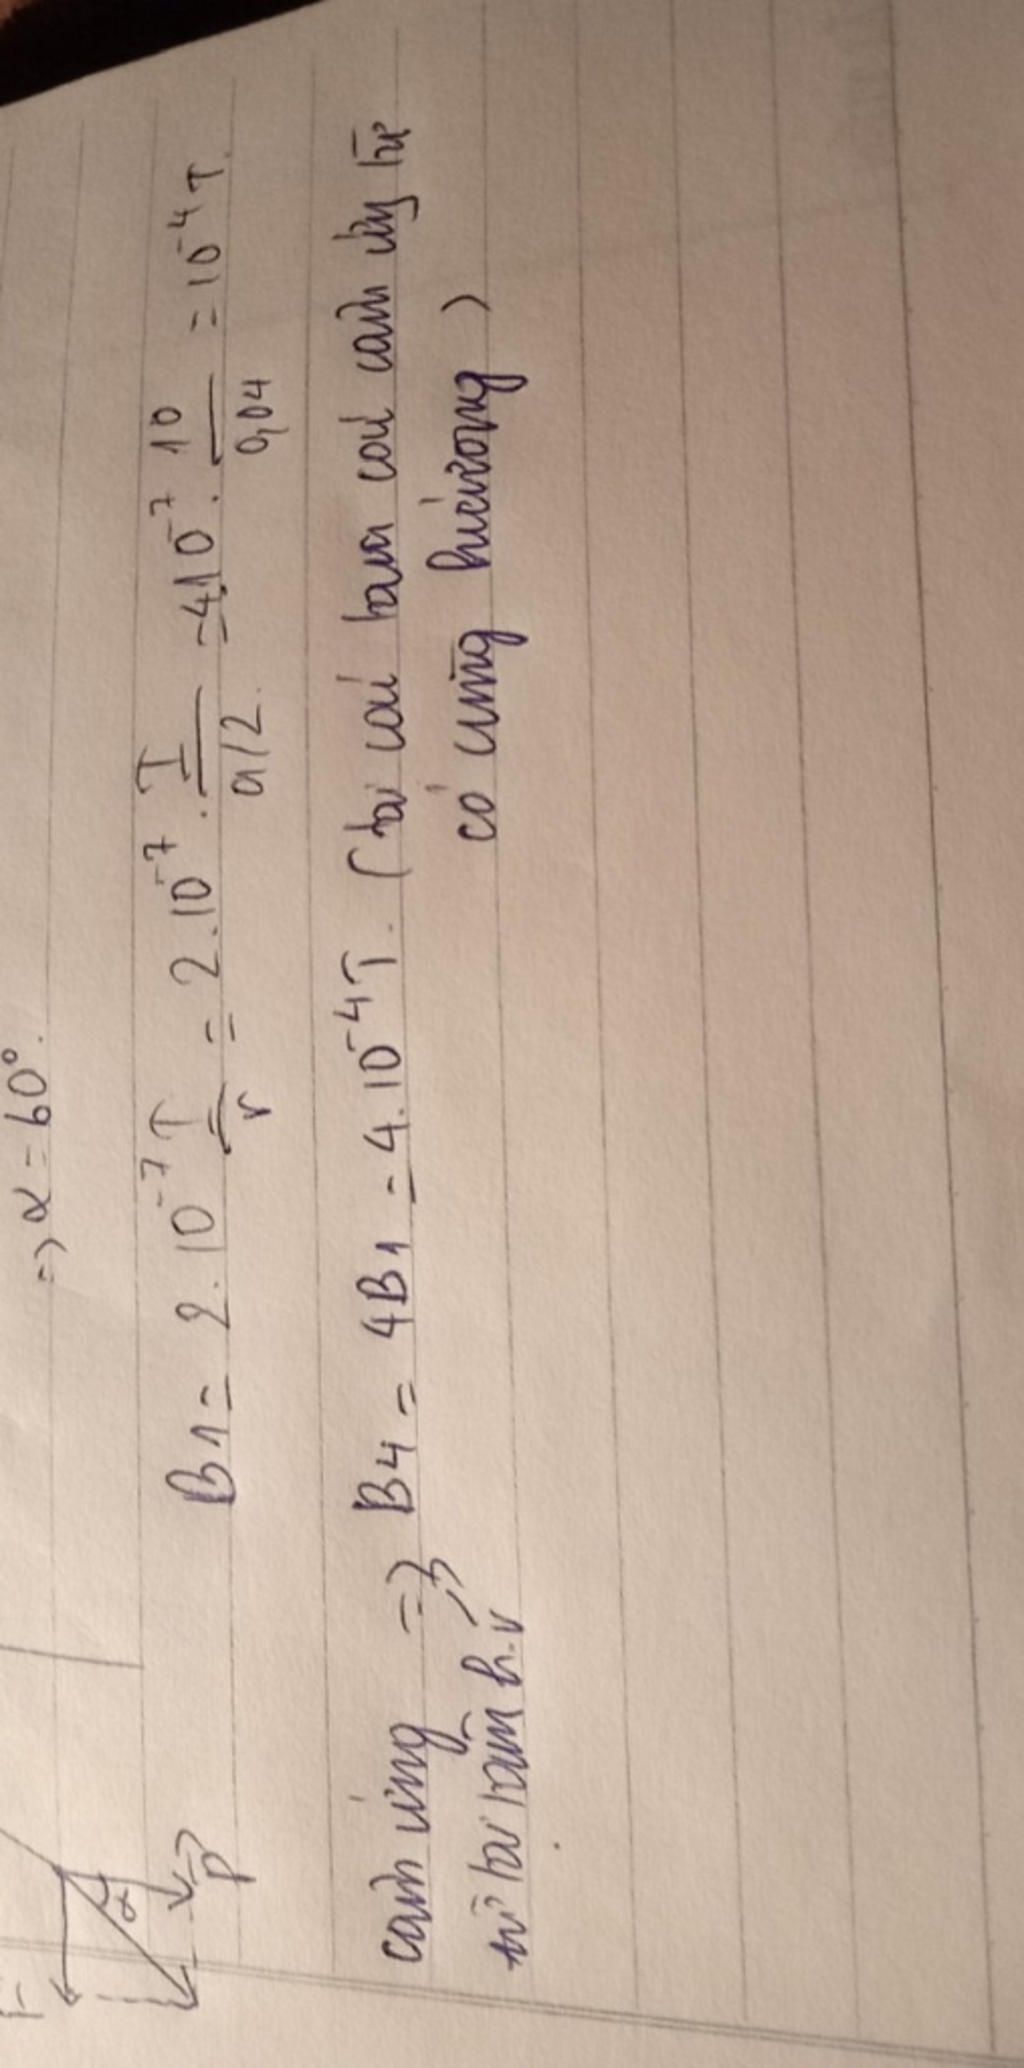 => α = 60°.
α
P
B1 = 2.10^-7 I/r = 2.10^-7 . I/(a/2) = 4.10^-7 . 10/0,04 = 10^-4 T.
cảm ứng => B4 = 4B1 = 4.10^-4 T. (tại cái tam cái cảm ứng từ
từ tại tâm h.v có cùng hướng)